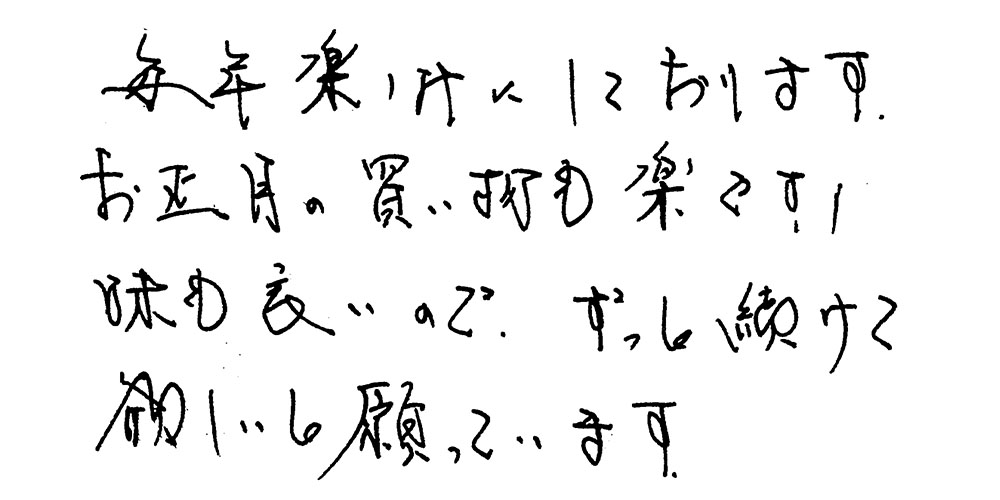 毎年楽しみにしております.
お正月の買い物も楽です!
味も良いので.ずっと続けて
欲しいと願っています.